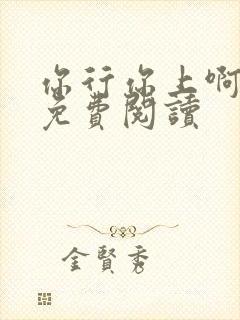 你行你上啊
免費閱讀
金賢秀